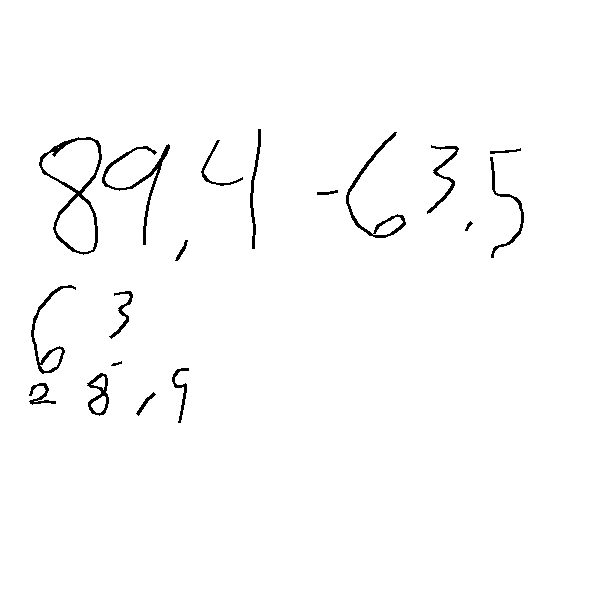 89,4 -63,5
6 3
28,9